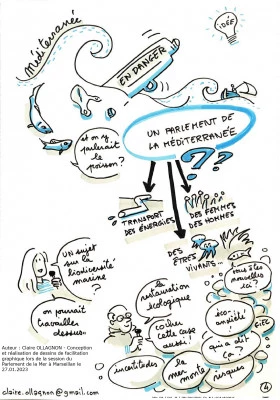 méditerranée
idée
EN DANGER
et on y
parlerait le
poisson?
UN PARLEMENT DE
LA MÉDITERRANÉE
??
TRANSPORT
DES ÉNERGIES
DES FEMMES
DES HOMMES
DES
ÊTRES
VIVANTS..
un sujet
sur la
biodiversité
marine?
la
restauration
écologique
vous êtes
nouvelles
ici?
on pourrait
travailler
dessus..
cocher
cette case
aussi!
éco-
anxiété
qui a dit
ça?
incertitudes
la
mer
monte
risques
Auteur : Claire OLLAGNON - Conception
et réalisation de dessins de facilitation
graphique lors de la session du
Parlement de la Mer à Marseillan le
27.01.2023
claire.ollagnon@gmail.com